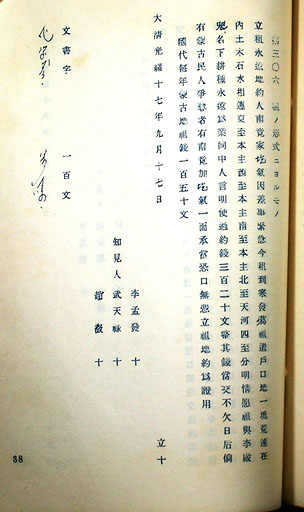 第三〇六號ノ形式ニヨルモノ
立租永遠地約人南竟家圪氣因差事緊急今租到寒發蕩祖遺戶口地一塊荒遠在
內土木石水相連東至本主西至本主南至本主北至天河四至分明情愿租與李殿
魁名下耕種永遠爲業同中人言明使過約錢三百二十文整其錢當交不欠日后倘
有蒙古民人爭碍者有南竟加圪氣一面承當恐口無憑立租地約爲證用
隨代每年蒙古地租錢一百五十文
大淸光緖十七年九月十七日 立十
李孟發 十
知見人 武天咏 十
趙 十
文書字 一百文
38